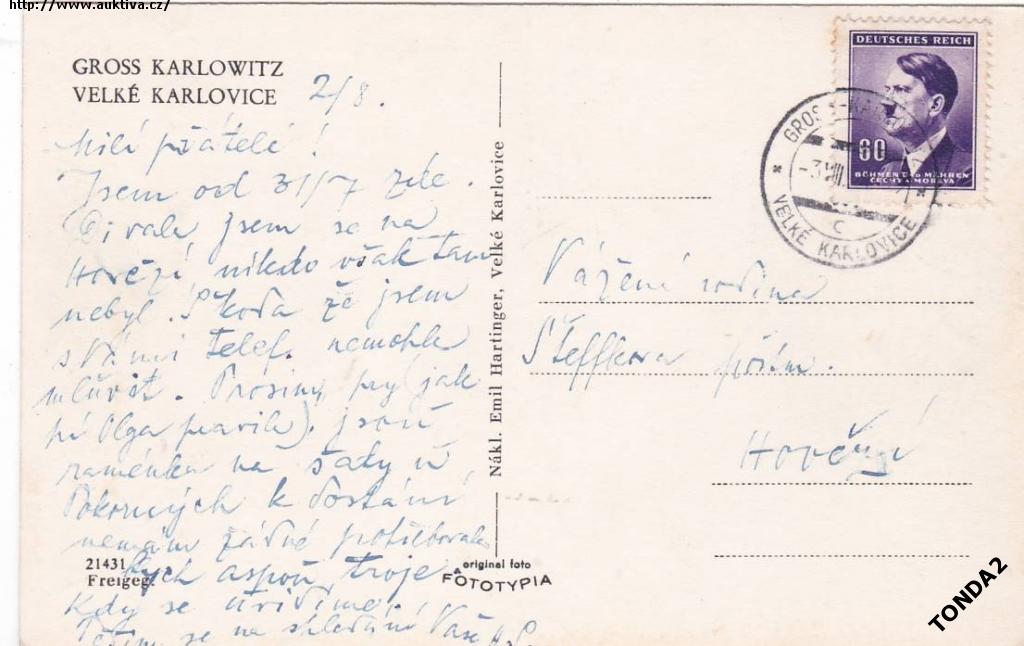 http://www.auktiva.cz/
GROSS KARLOWITZ
VELKÉ KARLOVICE
2/8.
Milí přátelé!
Jsem od 31/7 zde.
jsem se na
Hovězí nikdo však tam
nebyl. Škoda že jsem
s Vámi telef. nemohla
mluvit. Prosím, prý (jak
pí Olga pravila) jsou
raménka na šaty u
Pokorných k dostání
nemám žádné potřebovala
bych aspoň troje
Kdy se uvidíme.
Těším se na shledání Vaše
21431
Freigeg.
Nákl. Emil Hartinger, Velké Karlovice
original foto
FOTOTYPIA
DEUTSCHES REICH
60
BÖHMEN UND MÄHREN
ČECHY A MORAVA
GROSS-KA
-3.VIII.
C
VELKÉ KARLOVICE
Vážená rodina
Šteffkova
Hovězí
TONDA2